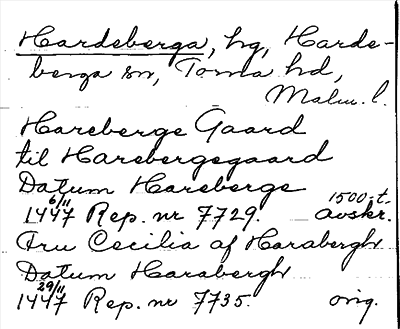 Hardeberga, hg, Harde-
berga sn, Torna hd,
Malm. l.
Hareberge Gaard
til Harebergegaard
Datum Hareberge
1447 6/11 Rep. nr 7729. 1500-t. avskr.
Fru Cecilia af Harabergh
Datum Harabergh
1447 29/11 Rep. nr 7735. orig.